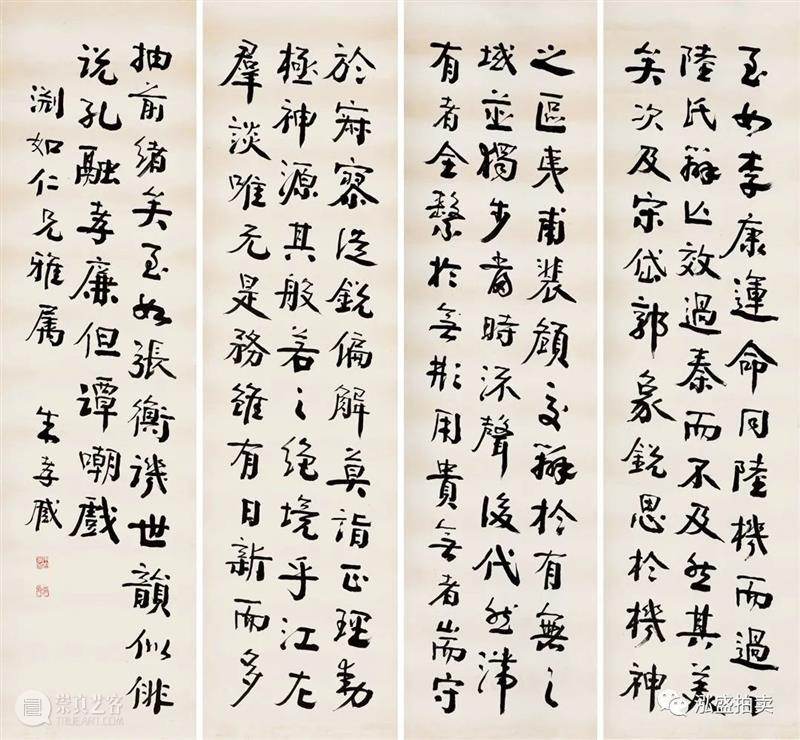 至如李康運命同陸機而過之
陸氏辯亡效過秦而不及然其美
矣次及宋岱郭象銳思於機神
之區夷甫裴頠交辯於有無之
域並獨步當時流聲後代然滯
有者全繫於無形用貴無者耑守
於寂寥徒銳偏解莫詣正理動
極神源其般若之絕境乎江左
羣淡唯元是務雖有日新而多
抽前緒矣至如張衡譏世韻似俳
说孔融孝廉但譚嘲戲
渕如仁兄雅属
朱孝臧
崇真艺客
TRUEART.COM
泓盛拍卖